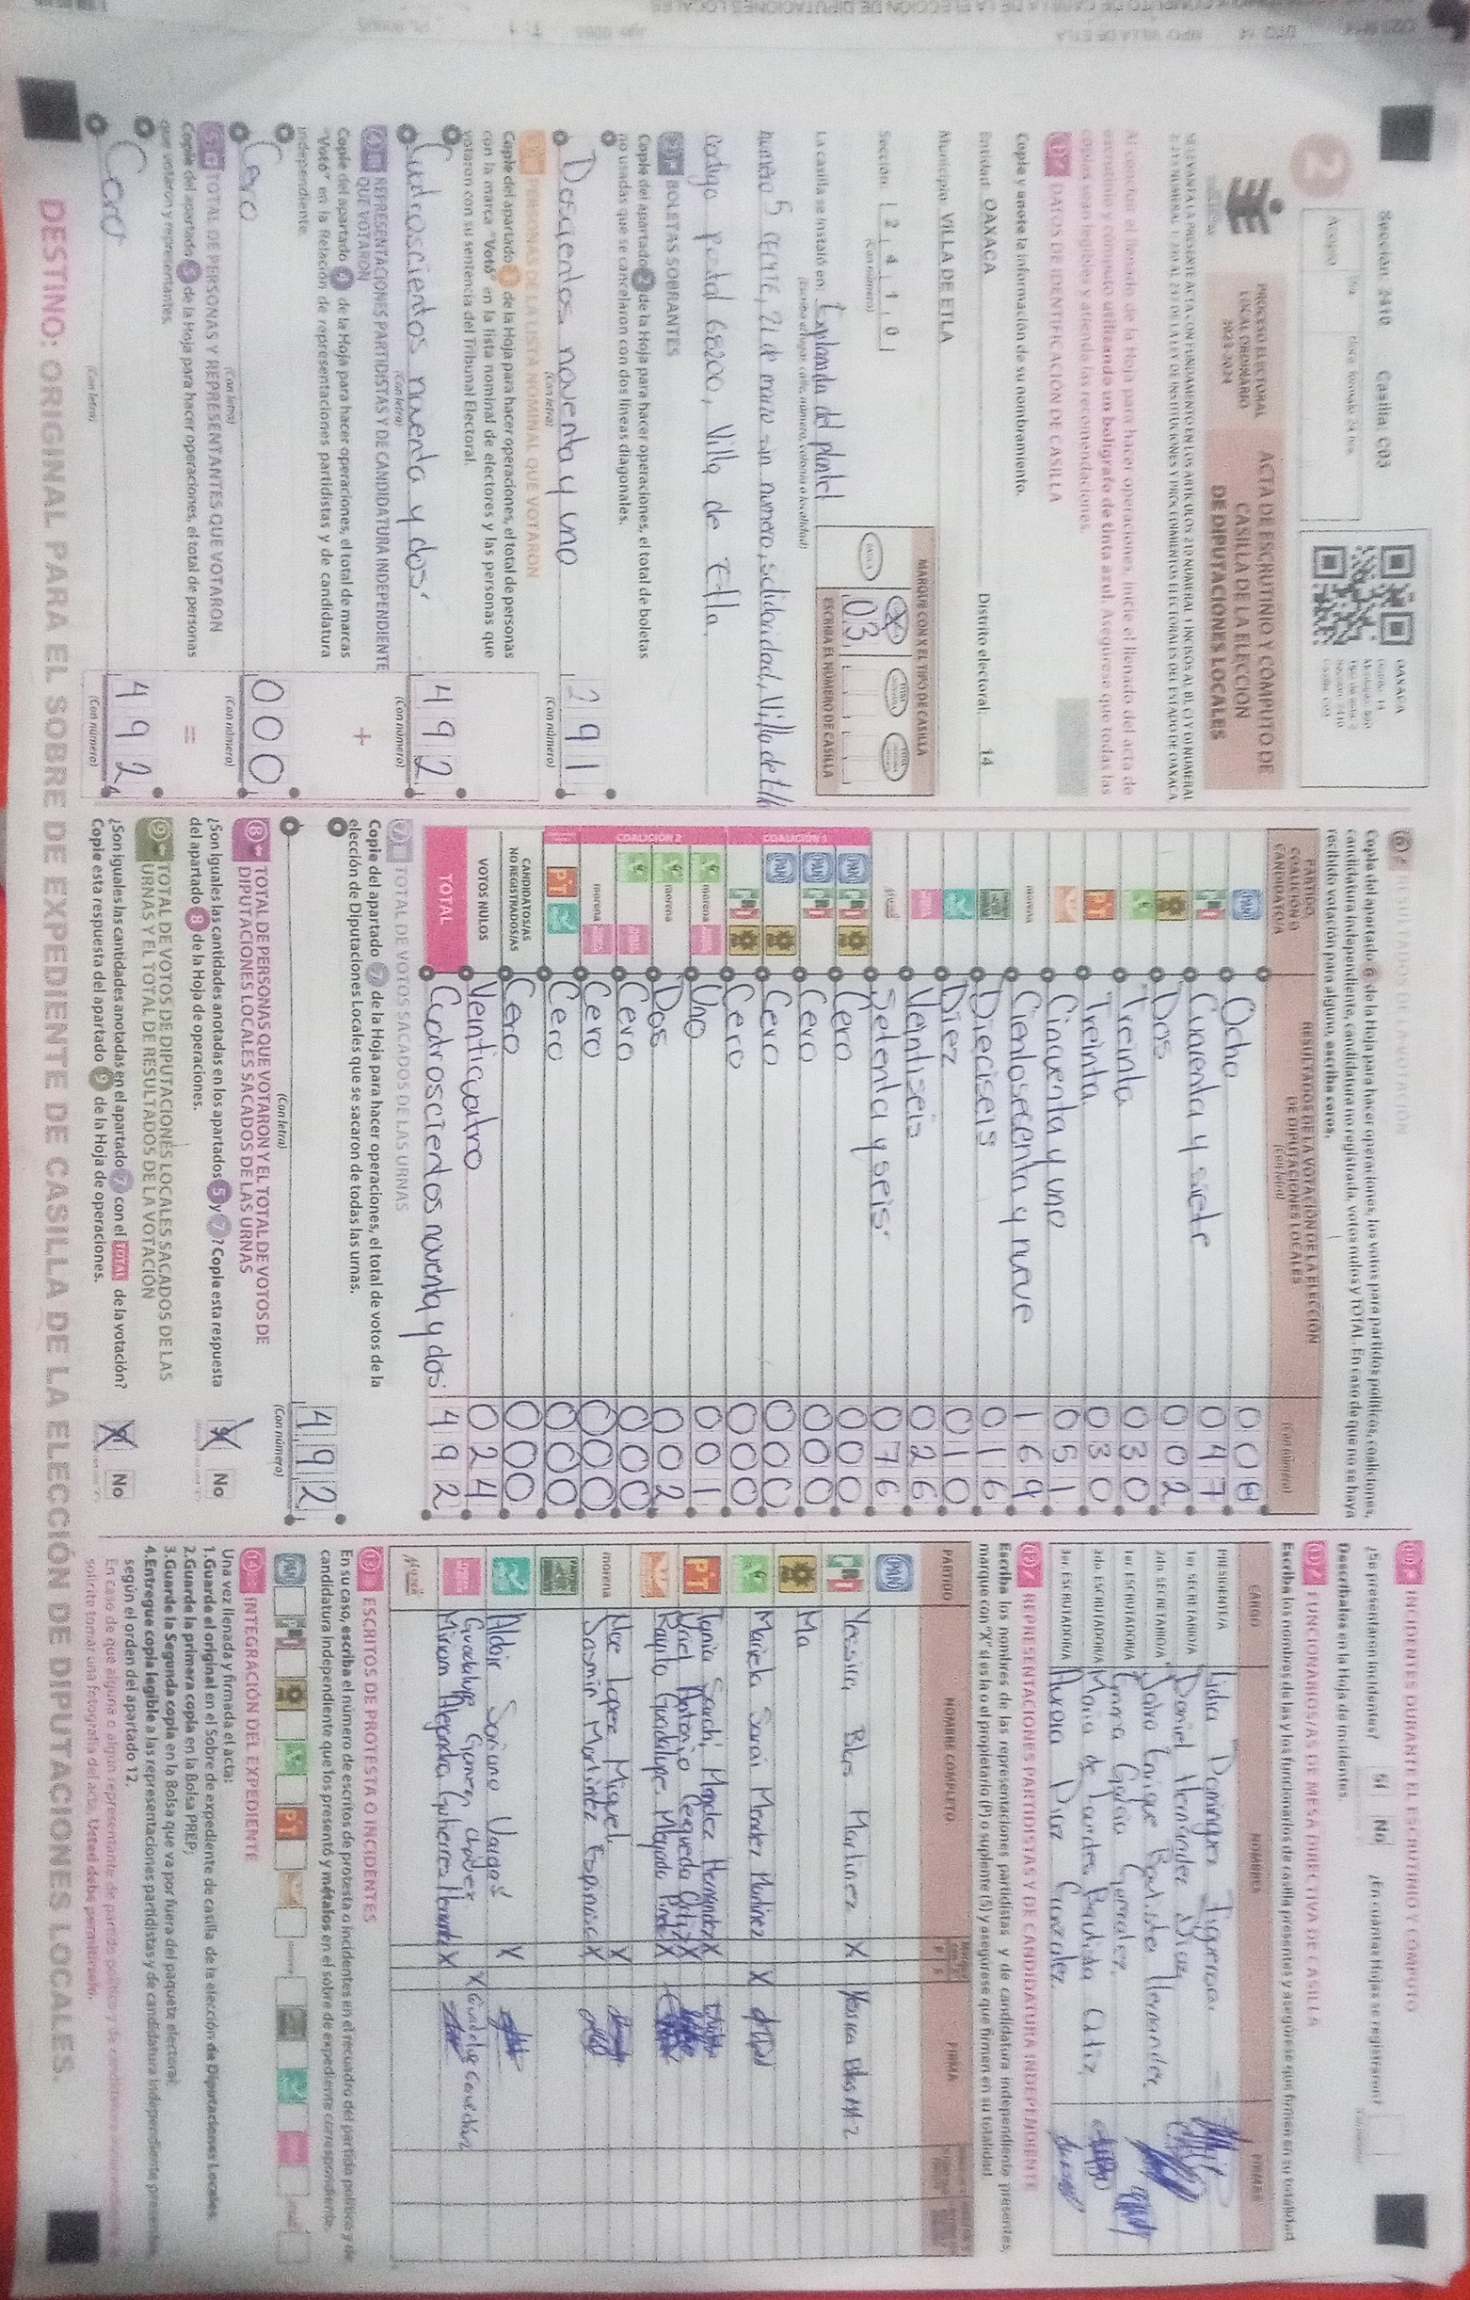 Sección: 2410 Casilla: C03
OAXACA
2
PROCESO ELECTORAL
LOCAL ORDINARIO
2023-2024
ACTA DE ESCRUTINIO Y CÓMPUTO DE
CASILLA DE LA ELECCIÓN
DE DIPUTACIONES LOCALES
Al concluir el llenado de la Hoja para hacer operaciones, inicie el llenado del acta de
escrutinio y cómputo utilizando un bolígrafo de tinta azul. Asegúrese que todas las
copias sean legibles y atienda las recomendaciones.
1 DATOS DE IDENTIFICACIÓN DE CASILLA
Copie y anote la información de su nombramiento.
Entidad: OAXACA Distrito electoral: 14
Municipio: VILLA DE ETLA
Sección: 2 4 1 0
(Con número)
MARQUE CON X EL TIPO DE CASILLA
ESCRIBA EL NÚMERO DE CASILLA
03
La casilla se instaló en: Explanada del plantel
(Escriba el lugar, calle, número, colonia o localidad)
numero 5 cecyte, 21 de marzo sin numero, solidaridad, Villa de Etla
codigo postal 68200, Villa de Etla.
2 BOLETAS SOBRANTES
Copie del apartado 2 de la Hoja para hacer operaciones, el total de boletas
no usadas que se cancelaron con dos líneas diagonales.
Doscientos noventa y uno 291
(Con letra) (Con número)
3 PERSONAS DE LA LISTA NOMINAL QUE VOTARON
Copie del apartado 3 de la Hoja para hacer operaciones, el total de personas
con la marca "Votó" en la lista nominal de electores y las personas que
votaron con su sentencia del Tribunal Electoral.
Cuatroscientos noventa y dos 492
(Con letra) (Con número)
4 REPRESENTACIONES PARTIDISTAS Y DE CANDIDATURA INDEPENDIENTE
QUE VOTARON
Copie del apartado 4 de la Hoja para hacer operaciones, el total de marcas
"Votó" en la Relación de representaciones partidistas y de candidatura
independiente.
+
Cero 000
(Con letra) (Con número)
5 TOTAL DE PERSONAS Y REPRESENTANTES QUE VOTARON
Copie del apartado 5 de la Hoja para hacer operaciones, el total de personas
que votaron y representantes.
=
Cero 492
(Con letra) (Con número)
6 RESULTADOS DE LA VOTACIÓN
Copie del apartado 6 de la Hoja para hacer operaciones, los votos para partidos políticos, coaliciones,
candidatura independiente, candidatura no registrada, votos nulos y TOTAL. En caso de que no se haya
recibido votación para alguno, escriba ceros.
PARTIDO, COALICIÓN O CANDIDATO/A
RESULTADOS DE LA VOTACIÓN DE LA ELECCIÓN DE DIPUTACIONES LOCALES
(Con letra) (Con número)
PAN Ocho 008
PRI Cuarenta y siete 047
Dos 002
Treinta 030
PT Treinta 030
Cincuenta y uno 051
morena Cientosecenta y nueve 169
Dieciseis 016
Diez 010
Veintiseis 026
Setenta y seis 076
COALICIÓN 1
PAN PRI Cero 000
PAN PRI Cero 000
PAN Cero 000
PRI Cero 000
COALICIÓN 2
morena Uno 001
morena Dos 002
Cero 000
morena Cero 000
PT Cero 000
CANDIDATOS/AS
NO REGISTRADOS/AS Cero 000
VOTOS NULOS Veinticuatro 024
TOTAL Cuatroscientos noventa y dos 492
7 TOTAL DE VOTOS SACADOS DE LAS URNAS
Copie del apartado 7 de la Hoja para hacer operaciones, el total de votos de la
elección de Diputaciones Locales que se sacaron de todas las urnas.
492
(Con letra) (Con número)
8 TOTAL DE PERSONAS QUE VOTARON Y EL TOTAL DE VOTOS DE
DIPUTACIONES LOCALES SACADOS DE LAS URNAS
¿Son iguales las cantidades anotadas en los apartados 5 y 7? Copie esta respuesta
del apartado 8 de la Hoja de operaciones.
No
9 TOTAL DE VOTOS DE DIPUTACIONES LOCALES SACADOS DE LAS
URNAS Y EL TOTAL DE RESULTADOS DE LA VOTACIÓN
¿Son iguales las cantidades anotadas en el apartado 7 con el TOTAL de la votación?
Copie esta respuesta del apartado 9 de la Hoja de operaciones.
No
10 INCIDENTES DURANTE EL ESCRUTINIO Y CÓMPUTO
¿Se presentaron incidentes? Sí No ¿En cuántas Hojas se registraron?
Descríbalos en la Hoja de incidentes.
11 FUNCIONARIOS/AS DE MESA DIRECTIVA DE CASILLA
Escriba los nombres de las y los funcionarios de casilla presentes y asegúrese que firmen en su totalidad
CARGO NOMBRES FIRMAS
PRESIDENTE/A Lidia Dominguez Figueroa
1er. SECRETARIO/A Daniel Hernandez Diaz
2do. SECRETARIO/A Bautista Hernandez
1er. ESCRUTADOR/A Emma Garcia Gonzalez
2do. ESCRUTADOR/A Maria de Lourdes Bautista Ortiz
3er. ESCRUTADOR/A Aurora Diaz Gonzalez
12 REPRESENTACIONES PARTIDISTAS Y DE CANDIDATURA INDEPENDIENTE
Escriba los nombres de las representaciones partidistas y de candidatura independiente presentes,
marque con "X" si es la o el propietario (P) o suplente (S) y asegúrese que firmen en su totalidad
PARTIDO NOMBRE COMPLETO P S FIRMA
PAN
PRI Yessica Blas Martinez X Yessica Blas Mtz
Ma
Mariela Sarai Mendez Martinez X
PT Mendez Hernandez X
Antonio Cequeda Ortiz X
Guadalupe X
morena Lopez Miguel X
Jasmin Martinez Espinoza X
Aldair Soriano Vargas X
Guadalupe Gomez X
Miriam Alejandra Gutierrez Hernandez X
13 ESCRITOS DE PROTESTA O INCIDENTES
En su caso, escriba el número de escritos de protesta o incidentes en el recuadro del partido político y de
candidatura independiente que los presentó y métalos en el sobre de expediente correspondiente.
14 INTEGRACIÓN DEL EXPEDIENTE
Una vez llenada y firmada el acta:
1. Guarde el original en el Sobre de expediente de casilla de la elección de Diputaciones Locales.
2. Guarde la primera copia en la Bolsa PREP;
3. Guarde la Segunda copia en la Bolsa que va por fuera del paquete electoral;
4. Entregue copia legible a las representaciones partidistas y de candidatura independiente presentes,
según el orden del apartado 12.
DESTINO: ORIGINAL PARA EL SOBRE DE EXPEDIENTE DE CASILLA DE LA ELECCIÓN DE DIPUTACIONES LOCALES.